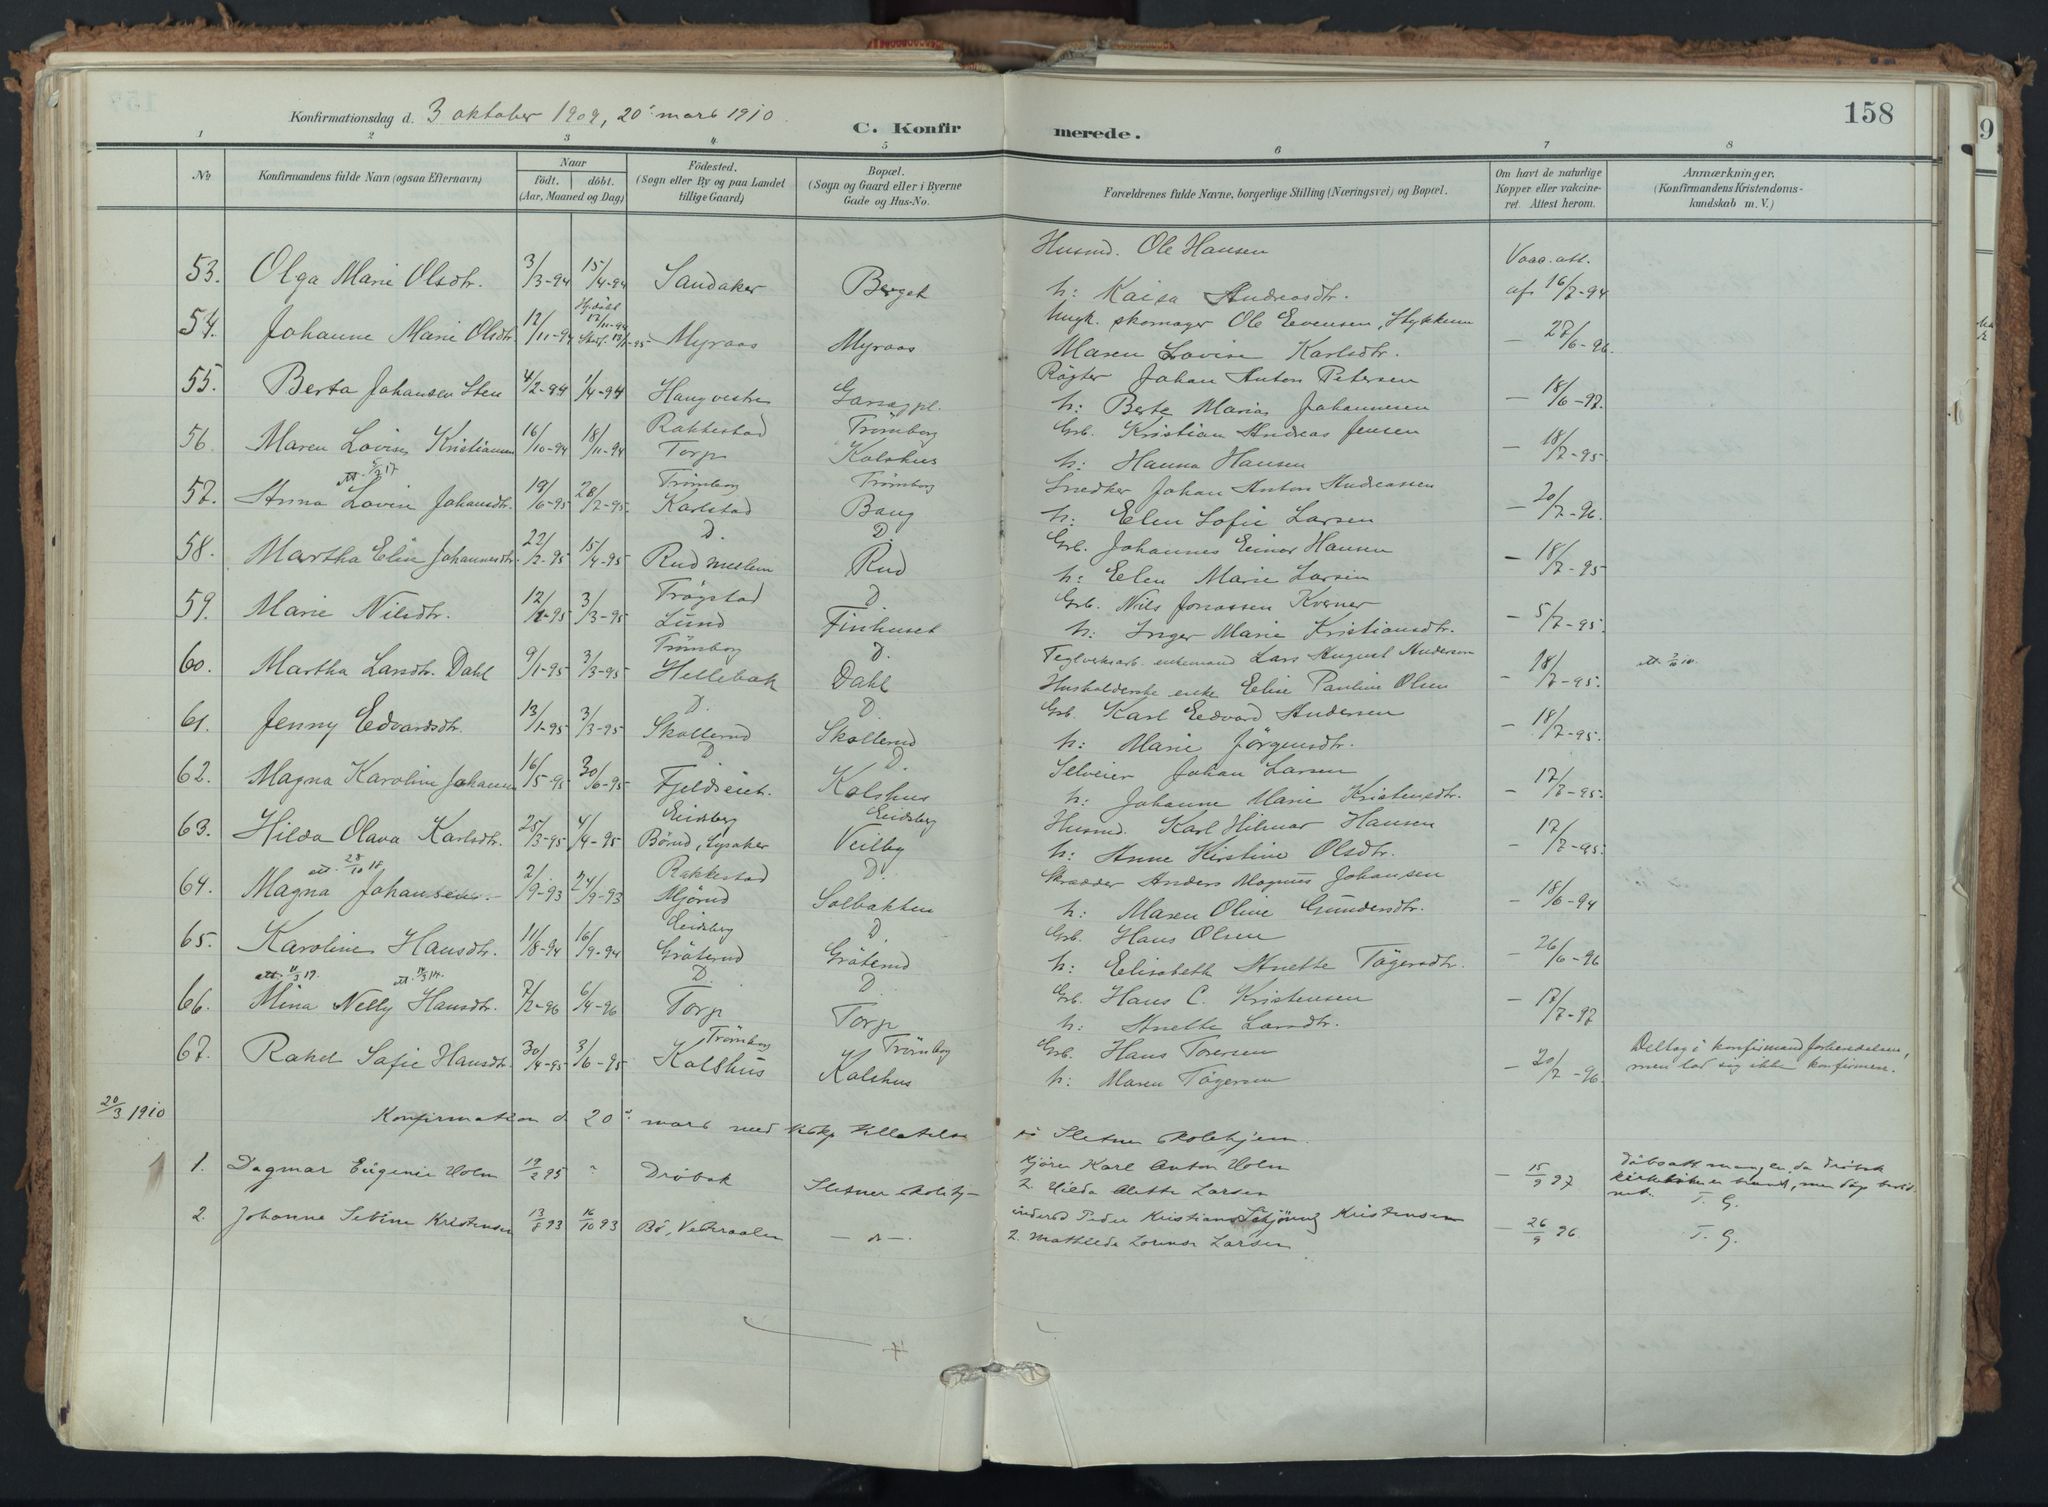 158
Konfirmationsdag d. 3 oktober 1909, 20' marts 1910.
C. Konfirmerede.
1 2 3 4 5 6 7 8
No
Konfirmandens fulde Navn (ogsaa Efternavn)
Naar
født. døbt.
(Aar, Maaned og Dag)
Födested.
(Sogn eller By og paa Landet
tillige Gaard)
Bopæl.
(Sogn og Gaard eller i Byerne
Gade og Hus-No.
Forældrenes fulde Navne, borgerlige Stilling (Næringsvei) og Bopæl.
Om havt de naturlige
Kopper eller vakcine-
ret. Attest herom.
Anmærkninger.
(Konfirmandens Kristendoms-
kundskab m. V.)
Husmd. Ole Hansen Vacc. att.
53. Olga Marie Olsdtr. 3/3-94 15/4-94 Sandaker Berget h: Kaisa Andreasdtr. af 16/7-94
Ungk. skomager Ole Evensen,
54. Johanne Marie Olsdtr 12/11-94 Myraas Myraas Maren Lovise Karlsdtr. — 28/6-96.
Røgter Johan Anton Petersen
55. Berta Johansen Sten 4/2-94 1/4-94 Haugvestre h: Berte Marias Johannesen — 18/6-97.
Rakkestad Trømborg Grb. Kristian Andreas Jensen
56. Maren Lovise Kristiansen 16/10-94 18/11-94 Torp Kolshus h: Hanna Hansen — 18/7-95.
Trømborg Trømborg Snedker Johan Anton Andreassen
57. Anna Lovise Johansdtr. 19/6-95 28/7-95 Karlstad Baug h: Elen Sofie Larsen — 20/7-96.
D. D. Grb. Johannes Einar Hansen
58. Martha Elise Johannesdtr. 22/2-95 15/4-95 Rud mellem Rud h: Elen Marie Larsen — 18/7-95
Trøgstad D Grb. Nils Jonassen Kverner
59. Marie Nilsdtr. 12/1-95 3/3-95 Lund Finhuset h: Inger Marie Kristiansdtr. — 5/7-95.
Trømborg D. Teglverksarb. enkemand Lars August Andersen
60. Martha Larsdtr. Dahl 9/1-95 3/3-95 Hellebæk Dahl Husholderske enke Elise Pauline Olsen — 18/7-95.
D. D Grb. Karl Edvard Andersen
61. Jenny Edvardsdtr. 13/1-95 3/3-95 Skollerud Skollerud h: Marie Jørgensdtr. — 18/7-95.
D D. Selveier Johan Larsen
62. Magna Karoline Johansen 16/5-95 30/6-95 Fjeldseiet. Kolshus h: Johanne Marie Kristensdtr. — 17/7-95.
Eidsberg Eidsberg Husmd. Karl Hilmar Hansen
63. Hilda Olava Karlsdtr. 25/3-95 4/4-95 Børud, Lysaker Veilby h: Anne Kirstine Olsdtr. — 17/7-95.
att. 28/10 18 Rakkestad D. Skrædder Anders Magnus Johansen
64. Magna Johansen. 2/9-93 24/9-93 Mjørud Solbakken h: Maren Oline Gundersdtr. — 18/6-94
Eidsberg D Grb. Hans Olsen
65. Karoline Hansdtr. 11/8-94 16/9-94 Gråterud Gråterud h: Elisabeth Anette Tøgersdtr. — 26/6-96
D. D. Grb. Hans C. Kristensen
66. Mina Nelly Hansdtr. 7/2-96 6/4-96 Torp Torp h: Anette Larsdtr. — 17/7-97
Trømborg Trømborg Grb. Hans Toresen Deltog i konfirmandforberedelsen,
67. Rakel Sofie Hansdtr. 30/4-95 3/6-95 Kolshus Kolshus h: Maren Tøgersen — 20/7-96 men lod sig ikke konfirmere.
20/3 1910 Konfirmation d. 20' marts med Tilladelse på Sletner skolehjem.
1. Dagmar Eugenie Holm 19/2 95 " Drøbak Sletner skolehj— Karl Anton Holm — 15/9 97 Döbsatt. mangler, da Drøbak
2. Hilda Alette Larsen T. G.
2. Johanne Sebine Kristensen 13/8 93 16/10 93 Bø, Vesteraalen — d — Peder Kristian Kristensen — 26/9 96 T. G.
2. Mathilde Lorense Larsen